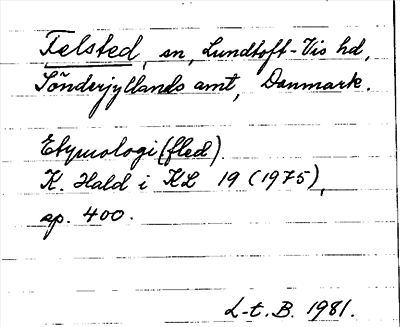 Felsted, sn, Lundtoft-Vis hd,
Sönderjyllands amt, Danmark.
Etymologi (fled).
K. Hald i KL 19 (1975),
sp. 400.
L-t. B. 1981.